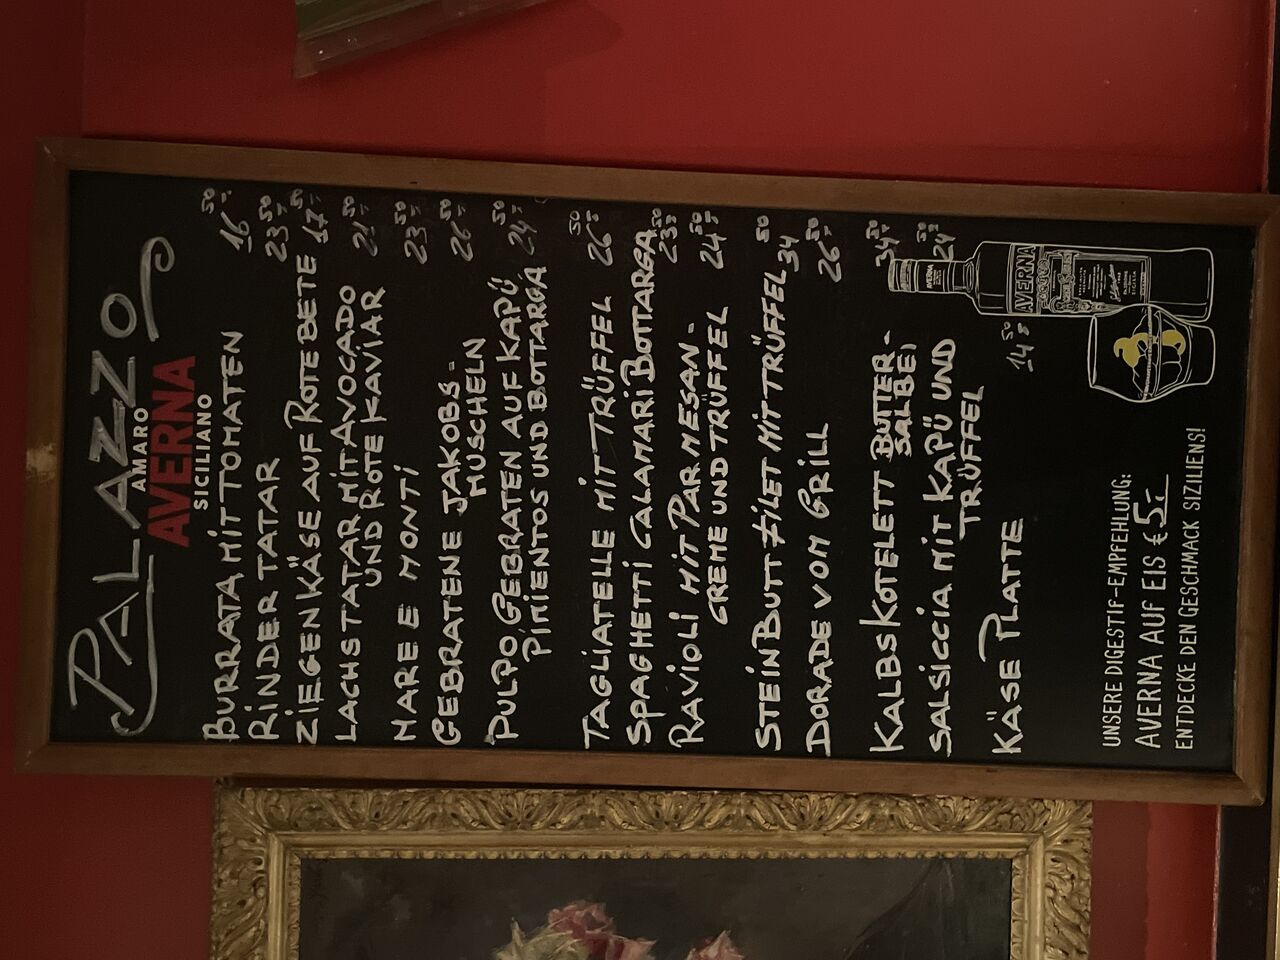 PALAZZO
AMARO
AVERNA
SICILIANO
BURRATA MIT TOMATEN 16 50
RINDER TATAR 23 50
ZIEGENKÄSE AUF ROTE BETE 17 50
LACHSTATAR MIT AVOCADO 21 50
UND ROTE KAVIAR
MARE E MONTI 23 50
GEBRATENE JAKOBS- 26 50
MUSCHELN
PULPO GEBRATEN AUF KAPÜ 24 50
PIMIENTOS UND BOTTARGA
TAGLIATELLE MIT TRÜFFEL 26 50
SPAGHETTI CALAMARI BOTTARGA 23 50
RAVIOLI MIT PARMESAN- 24 50
CREME UND TRÜFFEL
STEINBUTT FILET MIT TRÜFFEL 34 50
DORADE VOM GRILL 26 50
KALBSKOTELETT BUTTER- 34 50
SALBEI
SALSICCIA MIT KAPÜ UND 24 50
TRÜFFEL
KÄSE PLATTE 14 50
AVERNA
AVERNA
UNSERE DIGESTIF-EMPFEHLUNG:
AVERNA AUF EIS € 5,-
ENTDECKE DEN GESCHMACK SIZILIENS!